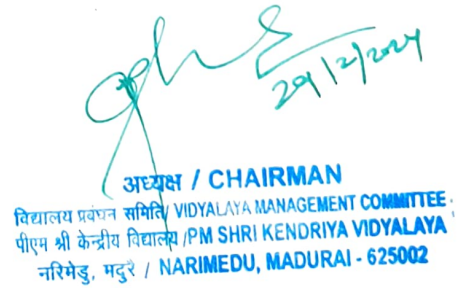 29/2/2024
अध्यक्ष / CHAIRMAN
विद्यालय प्रबंधन समिति/ VIDYALAYA MANAGEMENT COMMITTEE
पीएम श्री केन्द्रीय विद्यालय /PM SHRI KENDRIYA VIDYALAYA
नरिमेडु, मदुरै / NARIMEDU, MADURAI - 625002